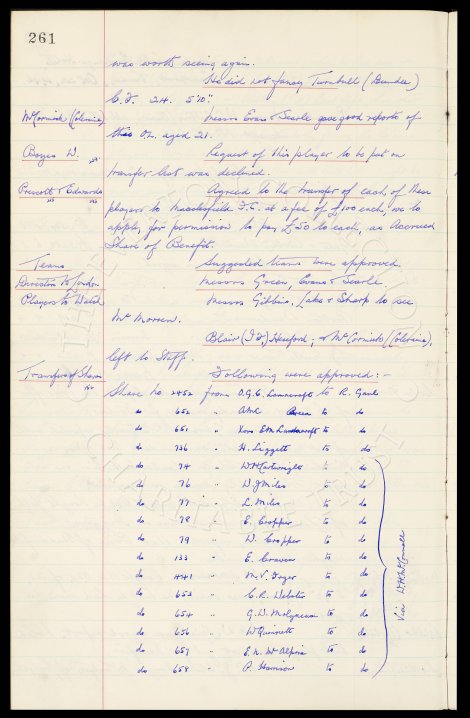 261
was worth seeing again.
He did not fancy Turnbull (Dundee)
C.F. 24. 5'10".
McCormick (Coleraine) Messrs Evans & Searle gave good reports of
this O.L. aged 21.
Boyes W. Request of this player to be put on
transfer list was declined.
Prescott & Edwards Agreed to the transfer of each of these
players to Macclesfield F.C. at a fee of £100 each, we to
apply for permission to pay £50 to each, as Accrued
Share of Benefit.
Teams Suggested teams were approved.
Directors to London Messrs Green, Evans & Searle.
Players to Watch Messrs Gibbins, Lake & Sharp to see
Mc Morran.
Blair (I.F.) Hereford; & McCormick (Coleraine),
left to Staff.
Transfers of Shares Following were approved:-
Share No 2452 from O.G.C. to R.
do 652 " to do
do 651 " Exors. to do
do 736 " H. Liggett to do
do 74 " W. McCartwright to do
do 76 " W.J. Miles to do
do 77 " L. Miles to do
do 78 " E. Cropper to do
do 79 " W. Cropper to do
do 133 " E. Craven to do
do 441 " M.V. to do
do 653 " C.R. Webster to do
do 654 " G.W. Molyneux to do
do 656 " W to do
do 657 " E.N. McAlpin to do
do 658 " P. Harrison to do
Via W.R. McConnell